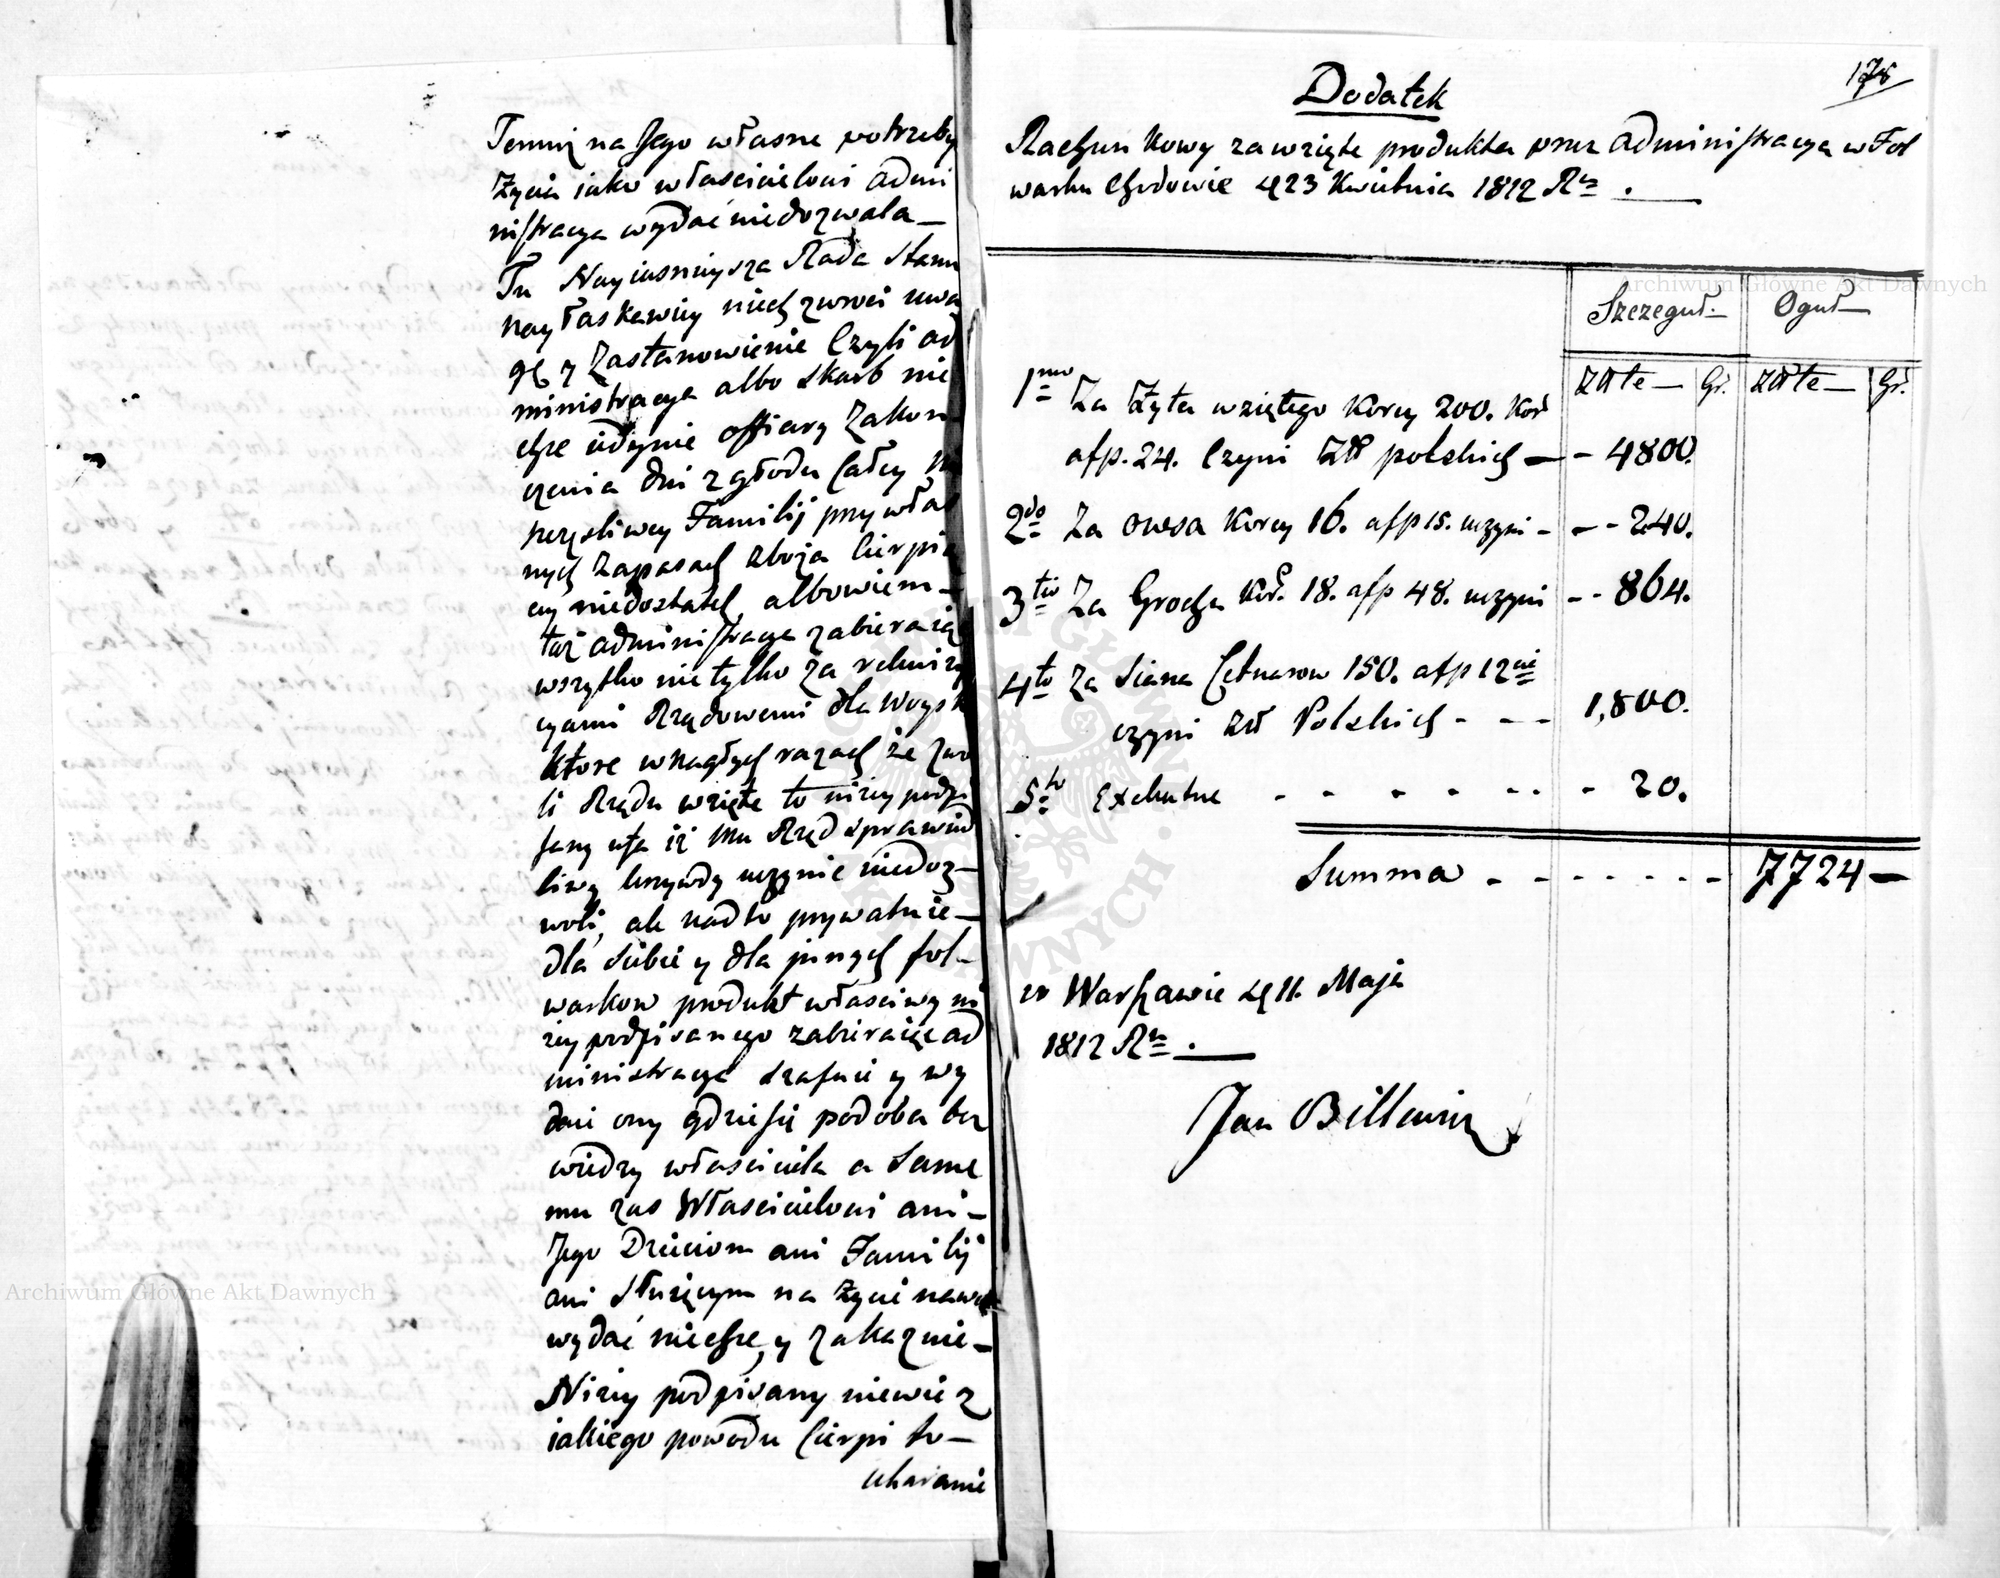 Temuż na Jego własne potrzeby
życia iako właścicielowi Admi
nistracya wydać niedozwala —
Tu Nayiaśnieysza Rada Stanu
nayłaskawiey niech zwróci uwa
gę y Zastanowienie Czyli ad
ministracya albo Skarb nie
chce iedynie offiary Zakoń
czenia dni z głodu całey nie
szczęśliwey Familij przy włas
nych zapasach zboża Cierpią
cey niedostatek, albowiem —
taż administracya zabieraiąc
wszytko nietylko za rekwizy
cyami Rządowemi dla Woysk
które w nagłych razach że z wo
li Rządu wzięte to niżey podpi
sany ufa iż mu Rząd sprawied
liwy krzywdy uczynić niedoz—
woli, ale nadto prywatnie —
dla siebie y dla innych fol—
warkow produkt właściwy ni
żey podpisanego zabieraiąc ad
ministracya szafuie y wy
daie ony gdzie się podoba bez
wiedzy właściciela a same
mu zaś Właścicielowi ani —
Jego Dzieciom ani Familij
ani służącym na życie nawet
wydać niechce, y zakaznie —
Niżey podpisany niewie z
iakiego powodu Cierpi to —
ukaranie
178
Dodatek
Rachunkowy za wzięte produkta przez Administracyą w Fol
warku Chrdowie d 23 Kwietnia 1812 Ru
Szczeguł — Oguł —
złłte — Gr. złłte — Gr.
1mo Za Żyta wziętego Korcy 200. Kor
afp. 24. Czyni Złł polskich — - 4800.
2do Za owsa Korcy 16. afp 15. uczyni - - - 240.
3tio Za Grochu Kor. 18. afp 48. uczyni - - 864.
4to Za siana Cetnarow 150. afp 12cie
czyni złł Polskich - - - 1,800.
5to Exekutne - - - - - - - 20.
Summa - - - - - - - 7724 —
w Warszawie d 11. Maja
1812 Ru
Jan Billewicz
Archiwum Główne Akt Dawnych
Archiwum Główne Akt Dawnych